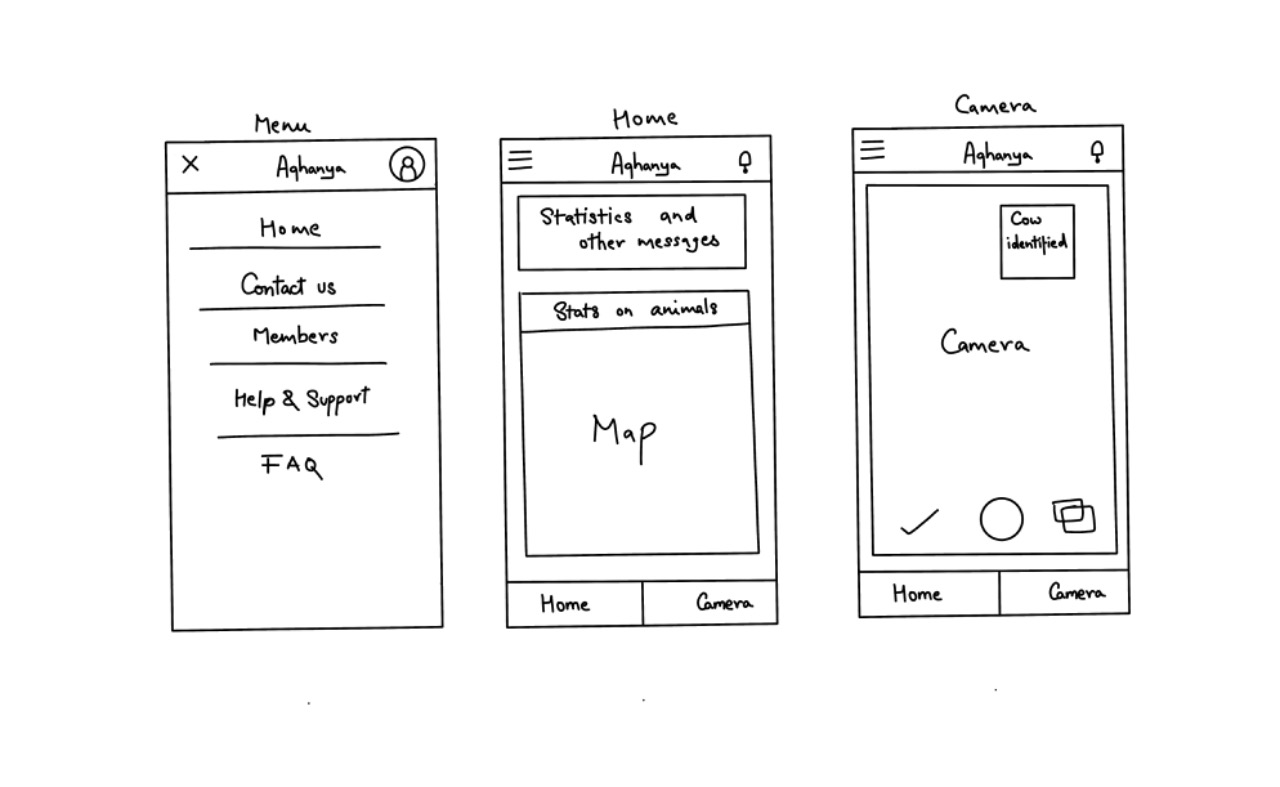 Menu
Aghanya
Home
Contact us
Members
Help & Support
FAQ
Home
Aghanya
Statistics and
other messages
Stats on animals
Map
Home
Camera
Camera
Aghanya
Cow
identified
Camera
Home
Camera